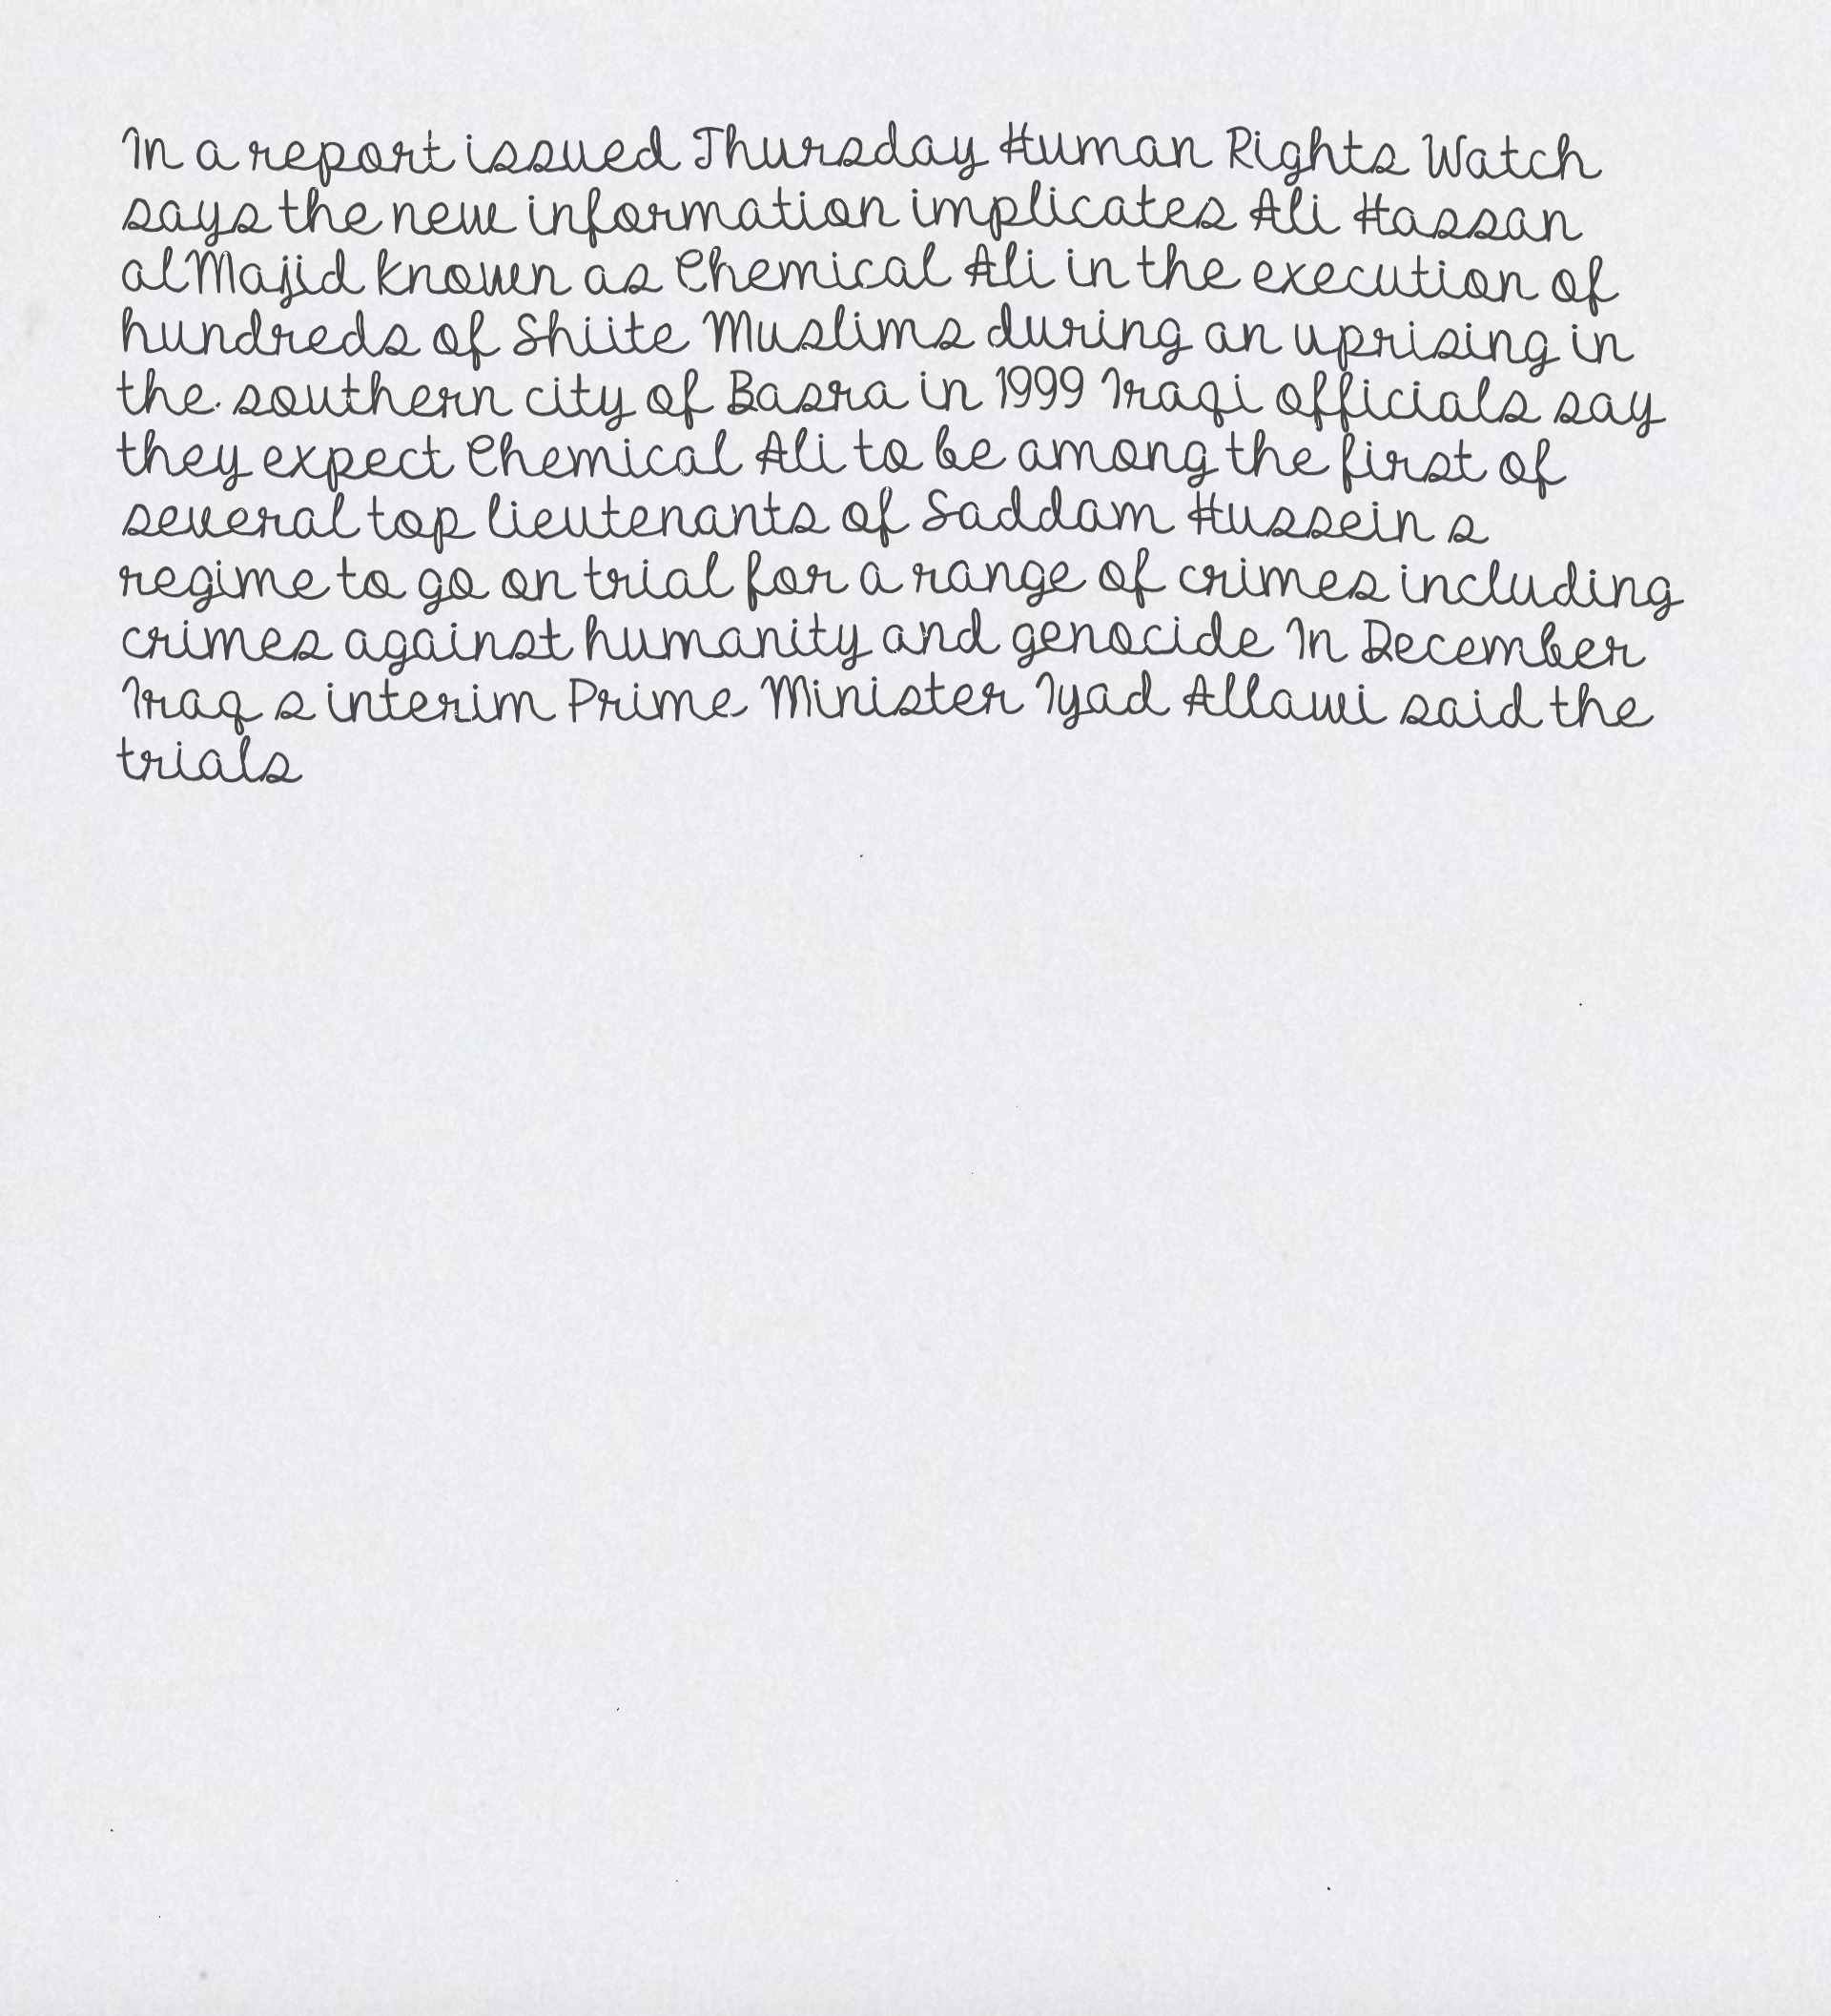 In a report issued Thursday Human Rights Watch
says the new information implicates Ali Hassan
alMajid known as Chemical Ali in the execution of
hundreds of Shiite Muslims during an uprising in
the southern city of Basra in 1999 Iraqi officials say
they expect Chemical Ali to be among the first of
several top lieutenants of Saddam Hussein s
regime to go on trial for a range of crimes including
crimes against humanity and genocide In December
Iraq s interim Prime Minister Iyad Allawi said the
trials